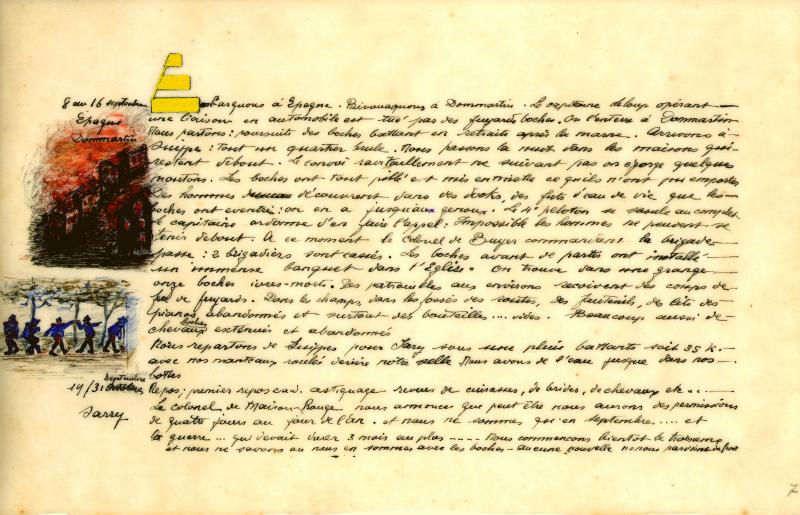 8 au 16 septembre
Épagne
Dommartin
Embarquons à Epagne. Bivouaquons à Dommartin. Le capitaine Leloup opérant
une liaison en automobile est tué par des fuyards boches. On l'enterre à Dommartin
Nous partons : poursuite des boches battant en retraite après la marne. Arrivons à
Suippe : Tout un quartier brule. Nous passons la nuit dans les maisons qui
restent debout. Le convoi ravitaillement ne suivant pas on égorge quelques
moutons. Les boches ont tout pillé et mis en miette ce qu'ils n'ont pu emporter
Des hommes découvrent dans des docks, des futs d'eau de vie que les
boches ont eventré : on en a jusqu'aux genoux. Le 4e peloton se saoule au complet
Le capitaine ordonne d'en faire l'appel. Impossible les hommes ne peuvent se
tenir debout. A ce moment le Colonel de Buyer commandant la brigade
passe : 2 brigadiers sont cassés. Les boches avant de partir ont installé
un immense banquet dans l'Eglise. On trouve dans une grange
onze boches ivres-morts. Des patrouilles aux environs reçoivent des coups de
feu de fuyards. Dans les champs dans les fossés des routes, des fauteuils, des lits des
pianos abandonnés et surtout des bouteilles ... vides. Beaucoup aussi de
chevaux boches exténués et abandonnés
Nous repartons de Suippes pour Sarry sous une pluie battante soit 35 K.
avec nos manteaux roulés derière notre selle. Nous avons de l'eau jusque dans nos
bottes
19/31 septembre
Sarry
Repos ; premier repos c.a.d. astiquage revues de cuirasses, de brides, de chevaux etc...
Le colonel de Maison Rouge nous annonce que peut être nous aurons des permissions
de quatre jours au jour de l'an. et nous ne sommes qu'en septembre.... et
la guerre ... qui devait durer 3 mois au plus ---- Nous commencons bientot le troisieme
et nous ne savons où nous en sommes avec les boches - aucune nouvelle ne nous parvient du front
7